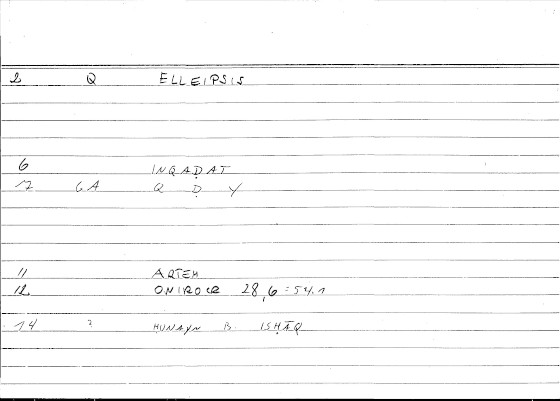 2 Q ELLEIPSIS
6 INQAḌAT
12 6A Q Ḍ Y
11 ARTEM
12 ONIROCR 28,6 = 54.1
14 2 ḤUNAYN B. ISḤĀQ